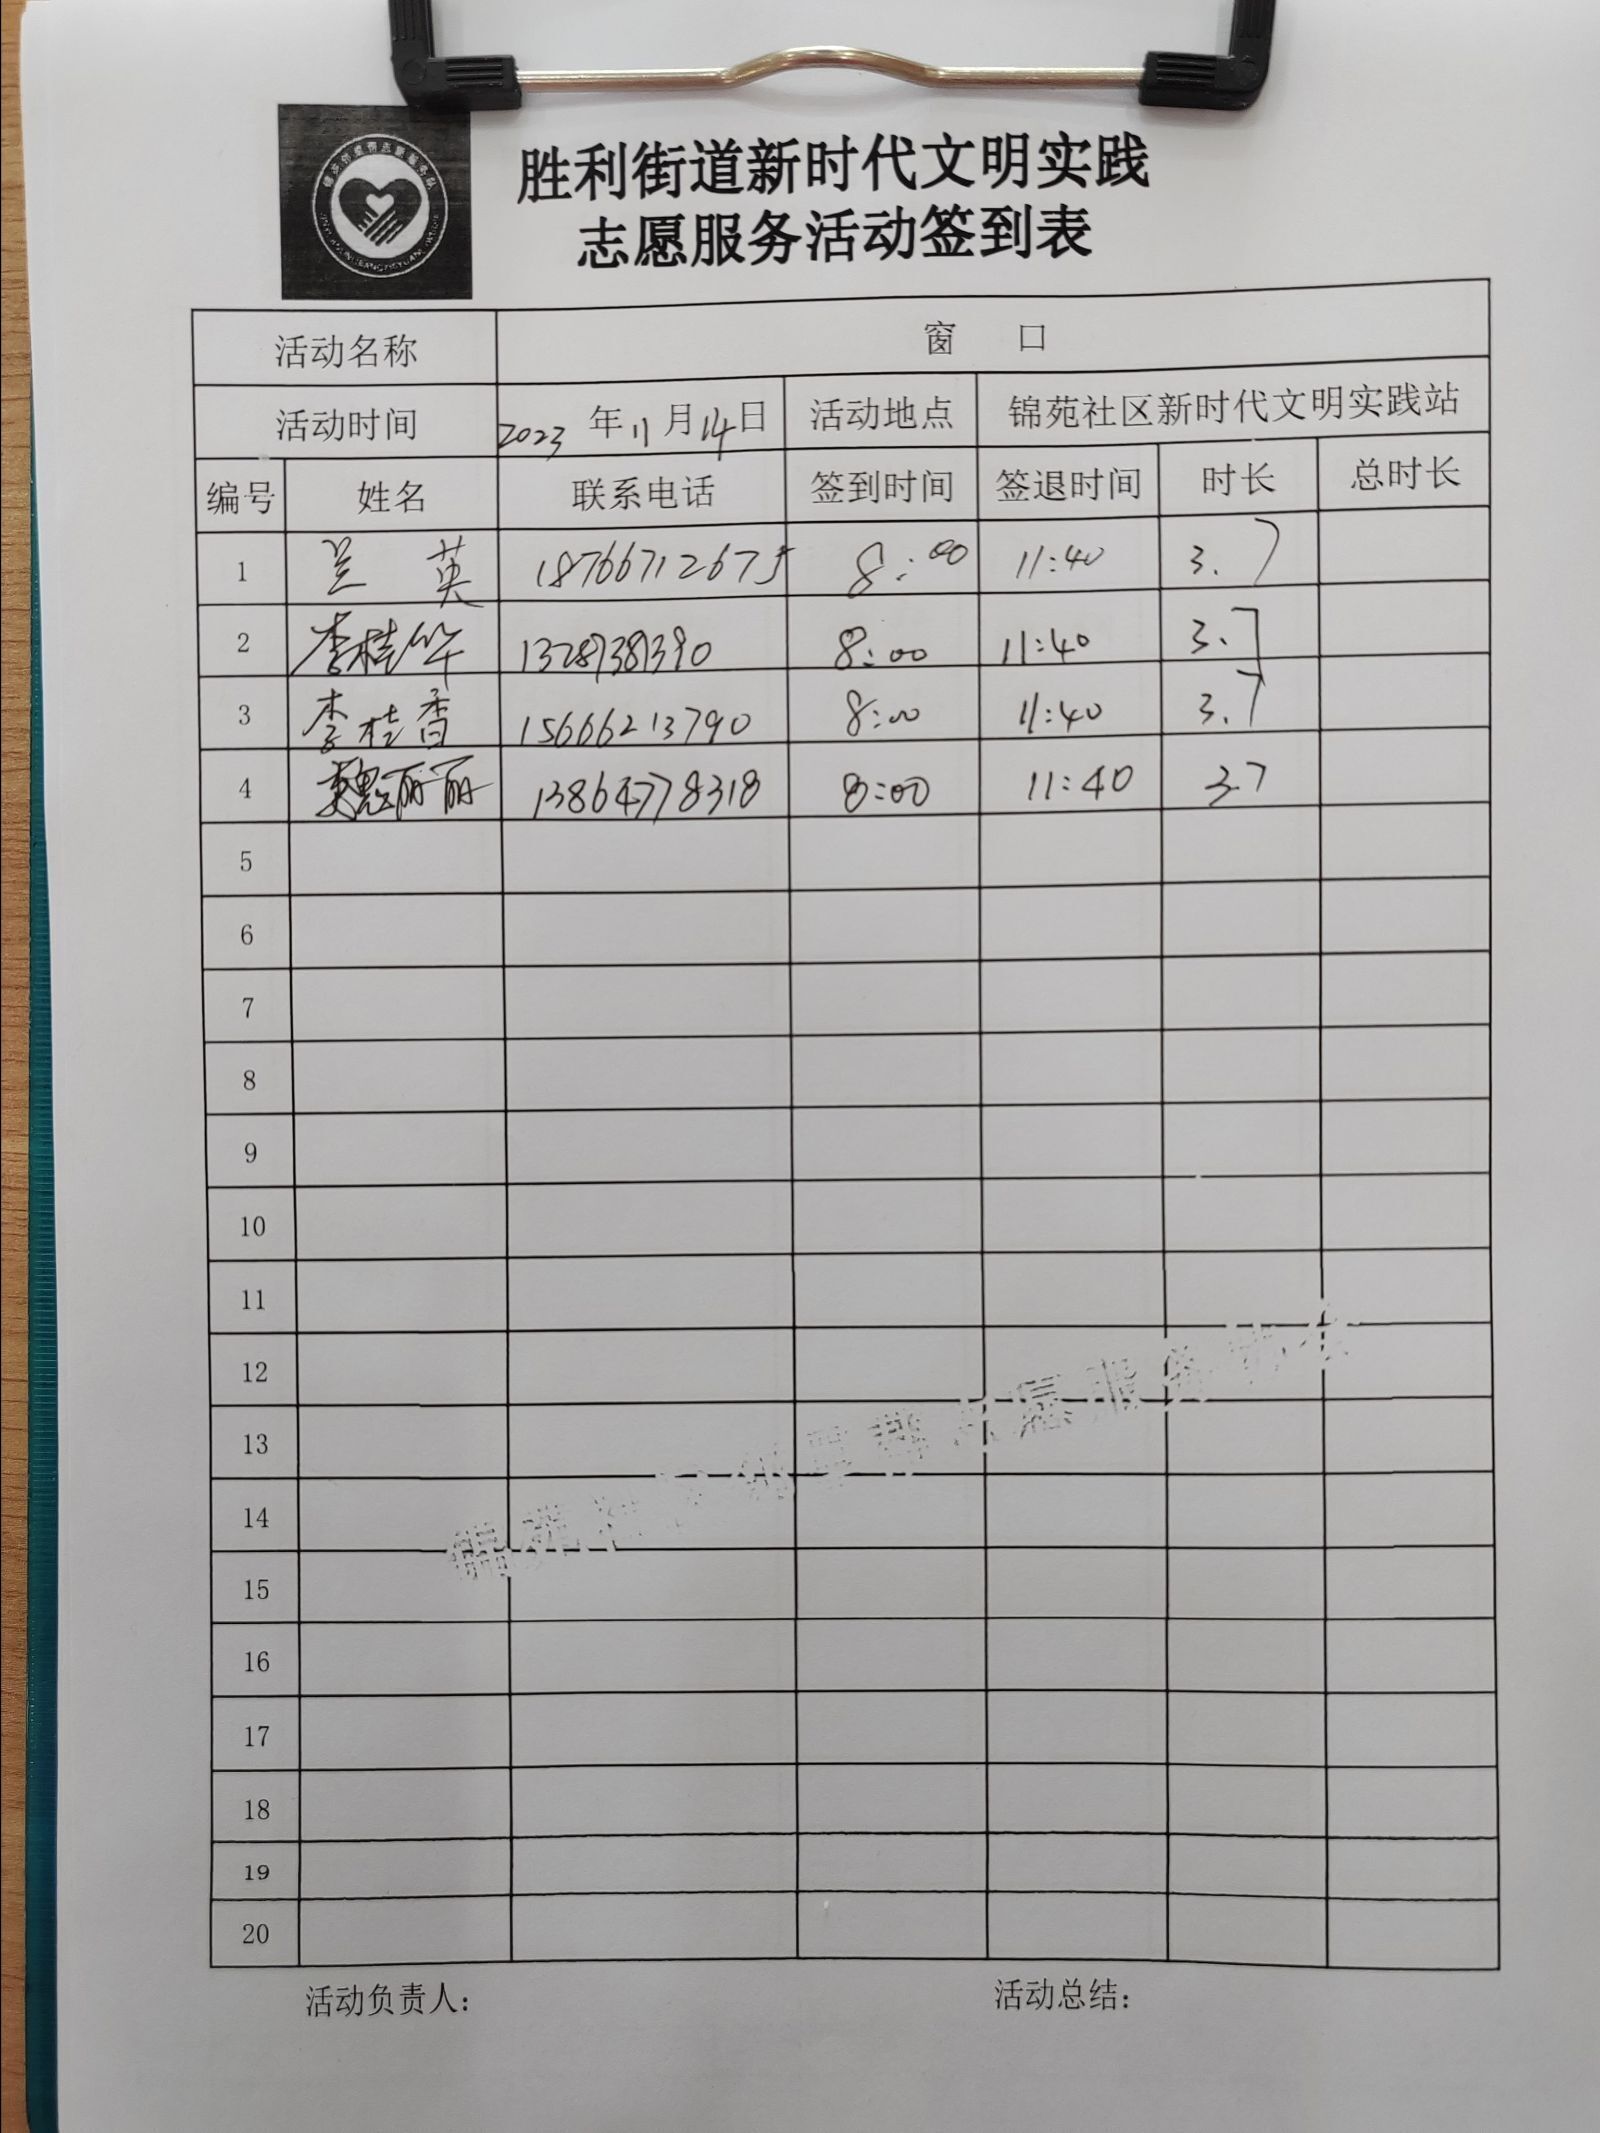 胜利街道新时代文明实践
志愿服务活动签到表
活动名称 窗 口
活动时间 2023 年 11 月 14 日 活动地点 锦苑社区新时代文明实践站
编号 姓名 联系电话 签到时间 签退时间 时长 总时长
1 兰 英 18766712675 8:00 11:40 3.7
2 李桂华 8:00 11:40 3.7
3 李桂香 15666213790 8:00 11:40 3.7
4 魏丽丽 13864778318 8:00 11:40 3.7
5
6
7
8
9
10
11
12
13
14
15
16
17
18
19
20
活动负责人: 活动总结: